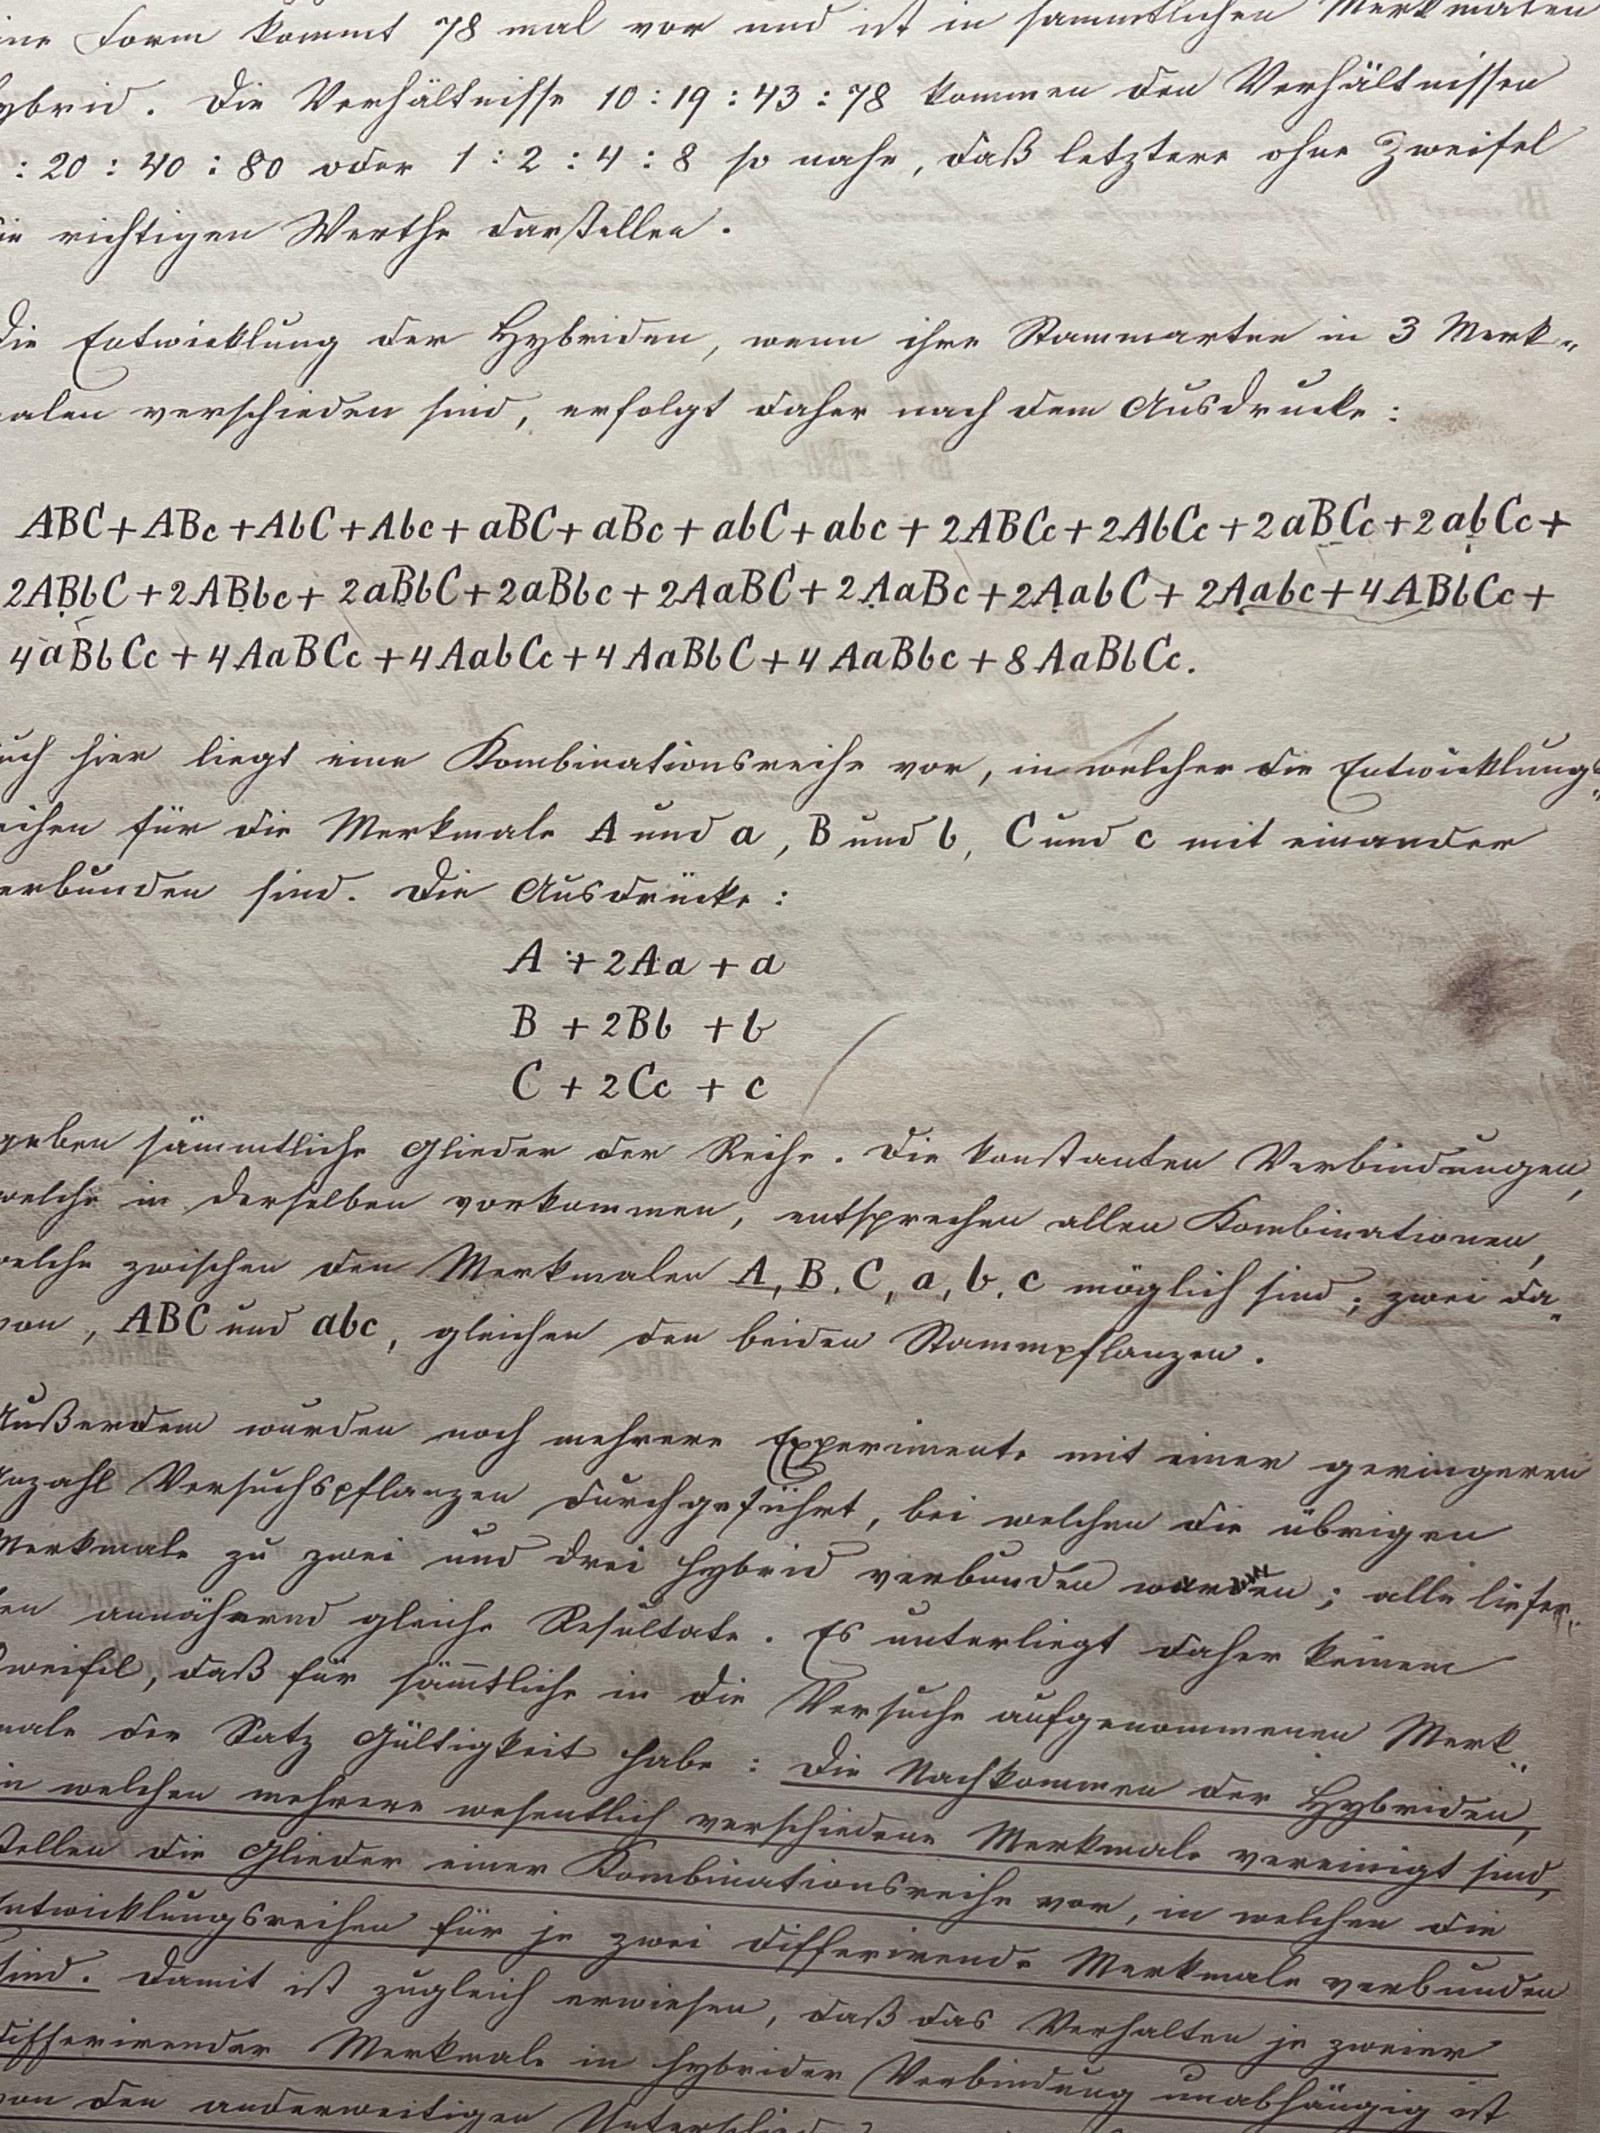 ine Form kommt 78 mal vor und ist in sämmtlichen Merkmalen
hybrid. Die Verhältnisse 10 : 19 : 43 : 78 kommen den Verhältnissen
: 20 : 40 : 80 oder 1 : 2 : 4 : 8 so nahe, daß letztere ohne Zweifel
ie richtigen Werthe darstellen.
Die Entwicklung der Hybriden, wenn ihre Stammarten in 3 Merk-
malen verschieden sind, erfolgt daher nach dem Ausdrucke:
ABC + ABc + AbC + Abc + aBC + aBc + abC + abc + 2ABCc + 2AbCc + 2aBCc + 2abCc +
2ABbC + 2ABbc + 2aBbC + 2aBbc + 2AaBC + 2AaBc + 2AabC + 2Aabc + 4ABbCc +
4aBbCc + 4AaBCc + 4AabCc + 4AaBbC + 4AaBbc + 8AaBbCc.
uch hier liegt eine Kombinationsreihe vor, in welcher die Entwicklungs-
eihen für die Merkmale A und a, B und b, C und c mit einander
erbunden sind. Die Ausdrücke:
A + 2Aa + a
B + 2Bb + b
C + 2Cc + c
geben sämmtliche Glieder der Reihe. Die konstanten Verbindungen,
welche in derselben vorkommen, entsprechen allen Kombinationen,
welche zwischen den Merkmalen A, B, C, a, b, c möglich sind; zwei da-
von, ABC und abc, gleichen den beiden Stammpflanzen.
Außerdem wurden noch mehrere Experimente mit einer geringeren
Anzahl Versuchspflanzen durchgeführt, bei welchen die übrigen
Merkmale zu zwei und drei hybrid verbunden waren; alle liefer-
ten annähernd gleiche Resultate. Es unterliegt daher keinem
Zweifel, daß für sämmtliche in die Versuche aufgenommenen Merk-
male der Satz Gültigkeit habe: Die Nachkommen der Hybriden,
in welchen mehrere wesentlich verschiedene Merkmale vereinigt sind,
stellen die Glieder einer Kombinationsreihe vor, in welchen die
Entwicklungsreihen für je zwei differirende Merkmale verbunden
sind. Damit ist zugleich erwiesen, daß das Verhalten je zweier
differirender Merkmale in hybrider Verbindung unabhängig ist
von den anderweitigen